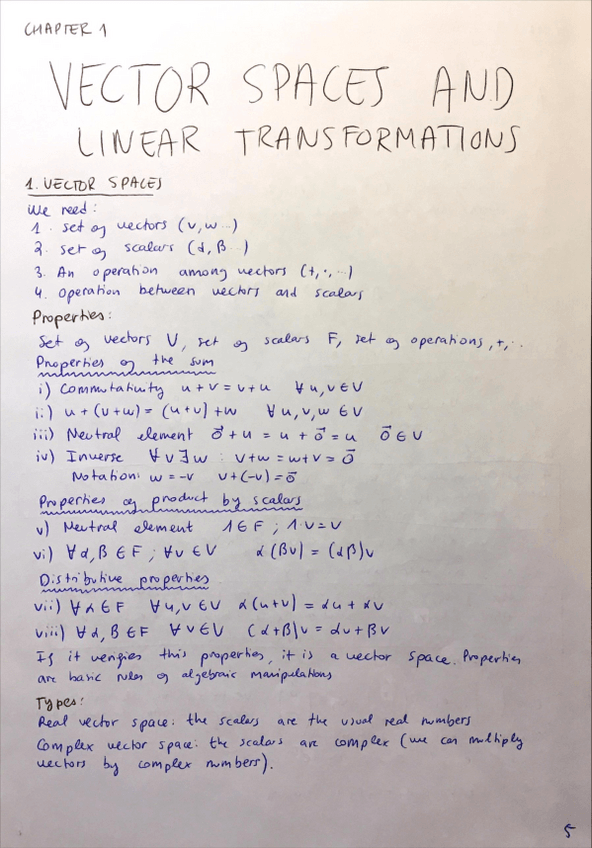 CHAPTER 1
VECTOR SPACES AND
LINEAR TRANSFORMATIONS
1. VECTOR SPACES
We need:
1. set of vectors (v, w...)
2. set of scalars (α, β...)
3. An operation among vectors (+, ·, ...)
4. Operation between vectors and scalars
Properties:
Set of vectors V, set of scalars F, set of operations, +, ·.
Properties of the sum
i) Commutativity u+v = v+u ∀u,v ∈ V
ii) u+(v+w) = (u+v)+w ∀u,v,w ∈ V
iii) Neutral element 0⃗ + u = u + 0⃗ = u 0⃗ ∈ V
iv) Inverse ∀v ∃w : v+w = w+v = 0⃗
Notation: w = -v v+(-v) = 0⃗
Properties of product by scalars
v) Neutral element 1 ∈ F ; 1·v = v
vi) ∀α,β ∈ F ; ∀v ∈ V α(βv) = (αβ)v
Distributive properties
vii) ∀α ∈ F ∀u,v ∈ V α(u+v) = αu + αv
viii) ∀α,β ∈ F ∀v ∈ V (α+β)v = αv + βv
If it verifies this properties, it is a vector space. Properties
are basic rules of algebraic manipulations
Types:
Real vector space: the scalars are the usual real numbers
Complex vector space: the scalars are complex (we can multiply
vectors by complex numbers).
5